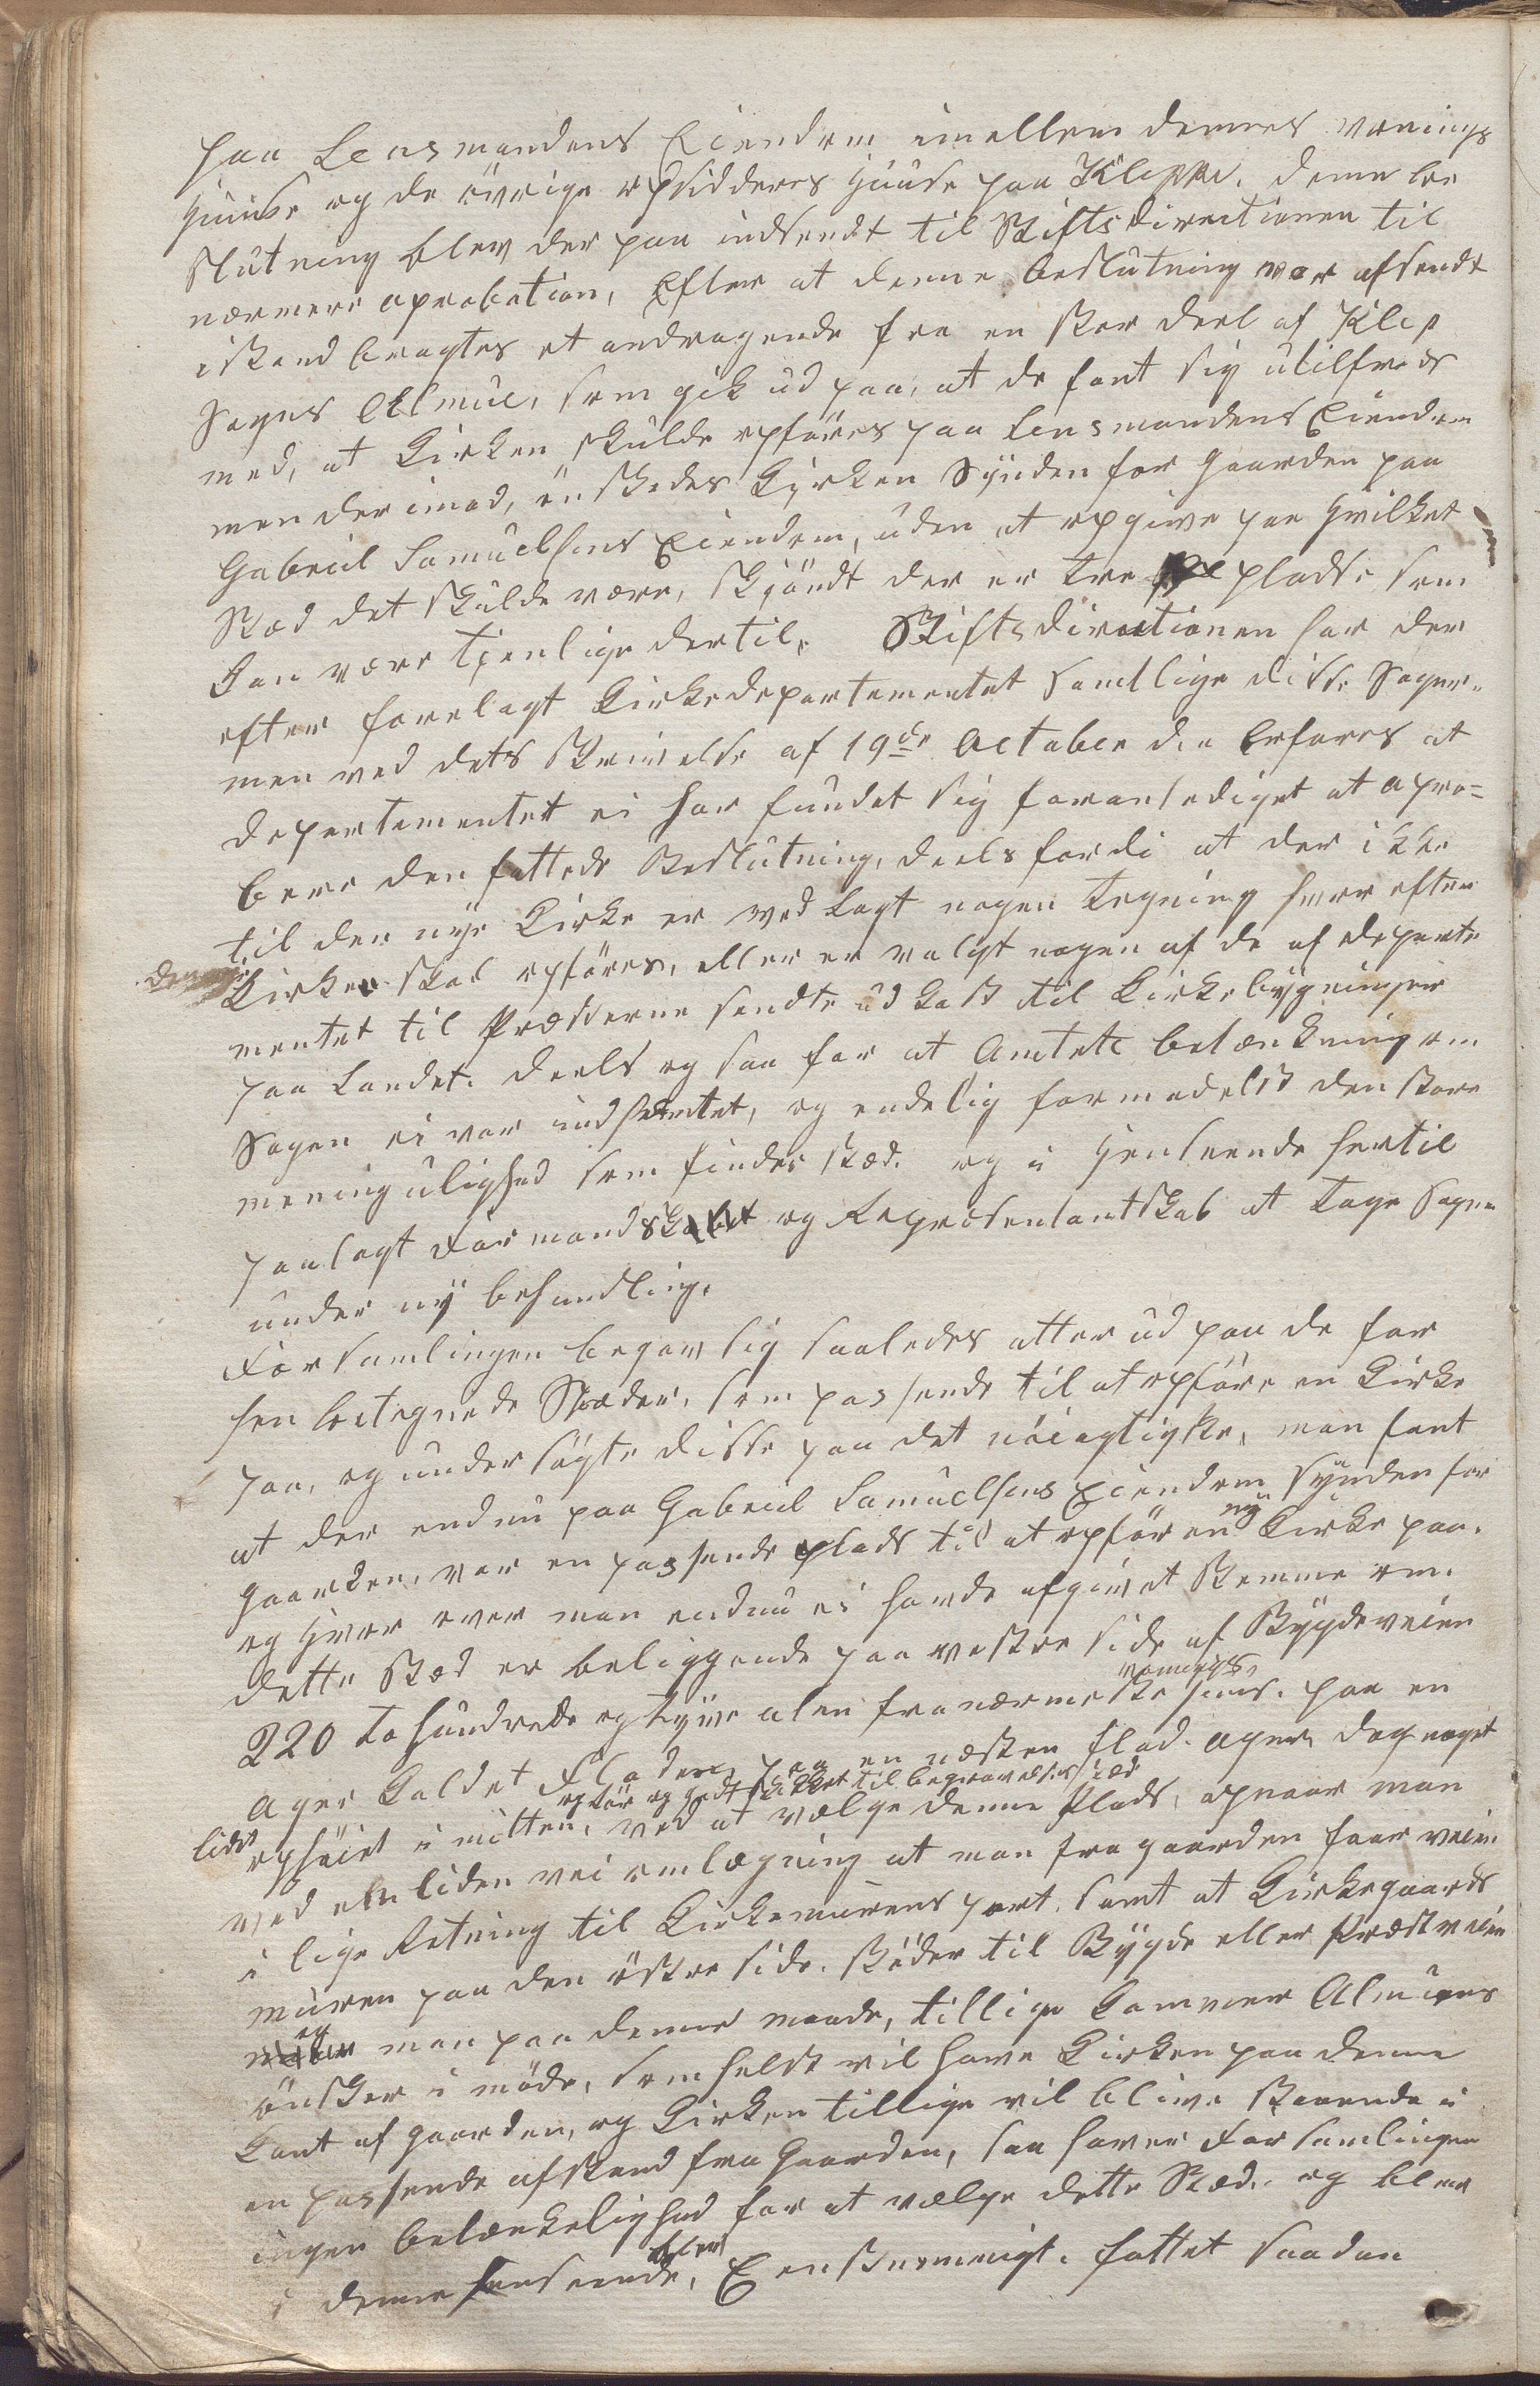 paa Lensmandens Eiendom imellem dennes vaanings
Huuse og de övrige opsidderes Huuse paa Kleppe. denne be
slutning blev der paa indsendt til Stiftsdirectionen til
nærmere aprobation, Efter at denne beslutning var afsendt
istand bragtes et andragende fra en stor deel af Klep
Sogns Almue, som gik ud paa, at de fant sig utilfreds
med, at Kirken skulde opföres paa Lensmandens Eiendom
men derimod, önskedes Kirken Synden for Gaarden paa
Gabriel Samuelsens Eiendom, uden at opgive paa hvilket
Stæd det skulde være, skjöndt der er tre pladse som
kan være tjenlige dertil. Stiftsdirectionen har der
efter forelagt Kirkedepartementet samtlige disse Sager.
men ved dets skrivelse af 19de October d.a. Erfares at
departementet ei har fundet sig foranlediget at apro=
bere den fattede Beslutning, deels fordi at der ikke
til den nye Kirke er ved lagt nogen Tegning hvor efter
Kirken skal opföres, eller er valgt nogen af de af departe
mentet til Præsterne sendte udkast til Kirkebygninger
paa Landet. deels og saa for at Amtets betænkning om
Sagen ei var indhentet, og endelig formedelst den store
meningulighed som findes stæd. og i Henseende hertil
paalagt Formandskabet og Repræsentantskab at tage Sagen
under ny behandling.
Forsamlingen begav sig saaledes atter ud paa de for
hen betegnede Stæder, som passende til at opföre en Kirke
paa, og undersögte disse paa det nöiagtigste, man fant
at der endnu paa Gabriel Samuelsens Eiendom synden for
Gaarden, var en passende plads til at opför en ny Kirke paa.
og hvor over man endnu ei havde afgivet Stemme om.
dette Stæd er beliggende paa vestre side af Bygdeveien
220 to hundrede og tyve alen fra nærmeste vaanings huus. paa en
ager kaldet Fladen, paa en næsten flad ager, dog noget
lidt ophöiet i mitten, og tör og godt skikket til begravelses stæd ved at vælge denne Plads, opnaar man
ved en liden vei omlægning at man fra gaarden faar veien
i lige Retning til Kirkemurens port. samt at Kirkegaards
muren paa den östre side. stöder til Bygde eller Præstveien
og man paa denne maade, tillige kommer Almuens
önsker i möde, som helst vil have Kirken paa denne
kant af gaarden, og Kirken tillige vil blive staaende i
en passende afstand fra Gaarden, saa haver Forsamlingen
ingen betænkelighed for at vælge dette Stæd. og blev
i denne henseende, Eenstemmigt. fattet saadan